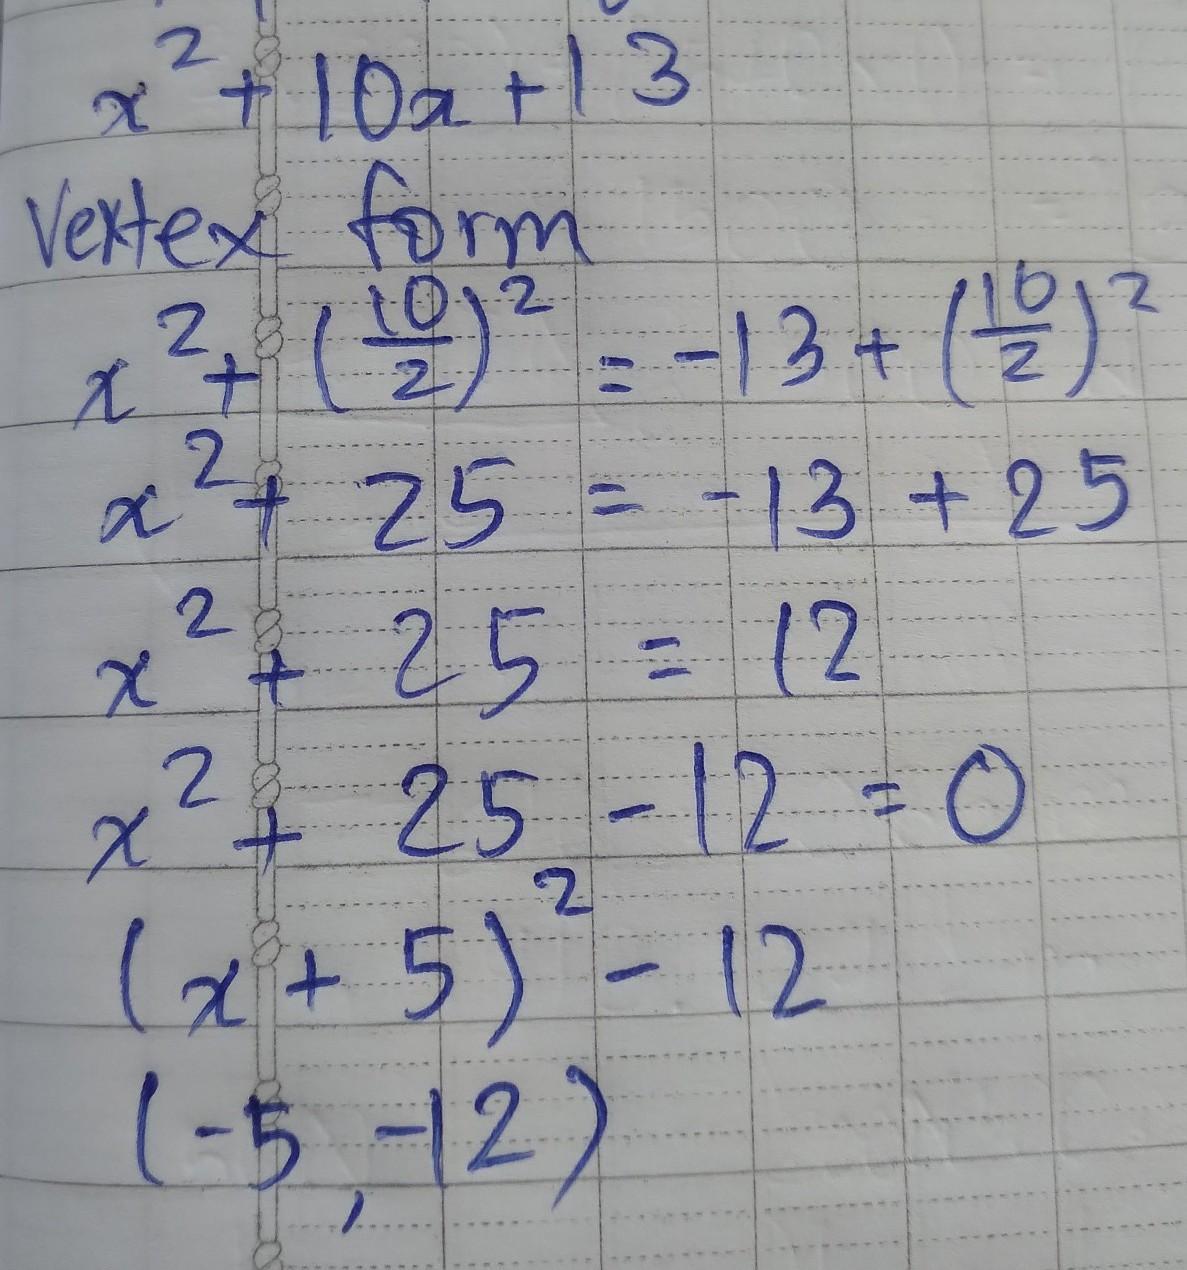 x² + 10x + 13
Vertex form
x² + (10/2)² = -13 + (10/2)²
x² + 25 = -13 + 25
x² + 25 = 12
x² + 25 - 12 = 0
(x + 5)² - 12
(-5, -12)